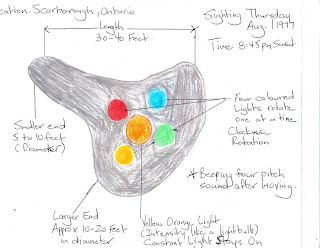 cation: Scarborough, Ontario
Sighting Thursday
Aug. 1977
Time: 8:45pm Sunset
Length
30-40 Feet.
Four coloured
Lights rotate
one at a time.
Clockwise
Rotation
Smller end
5 to 10 feet
(Diameter)
* Beeping four pitch
sound after moving.
Larger End
Approx 10-20 Feet
in diameter.
Yellow Orange Light
(Intensity like a lightbulb)
Constant Light Stays On